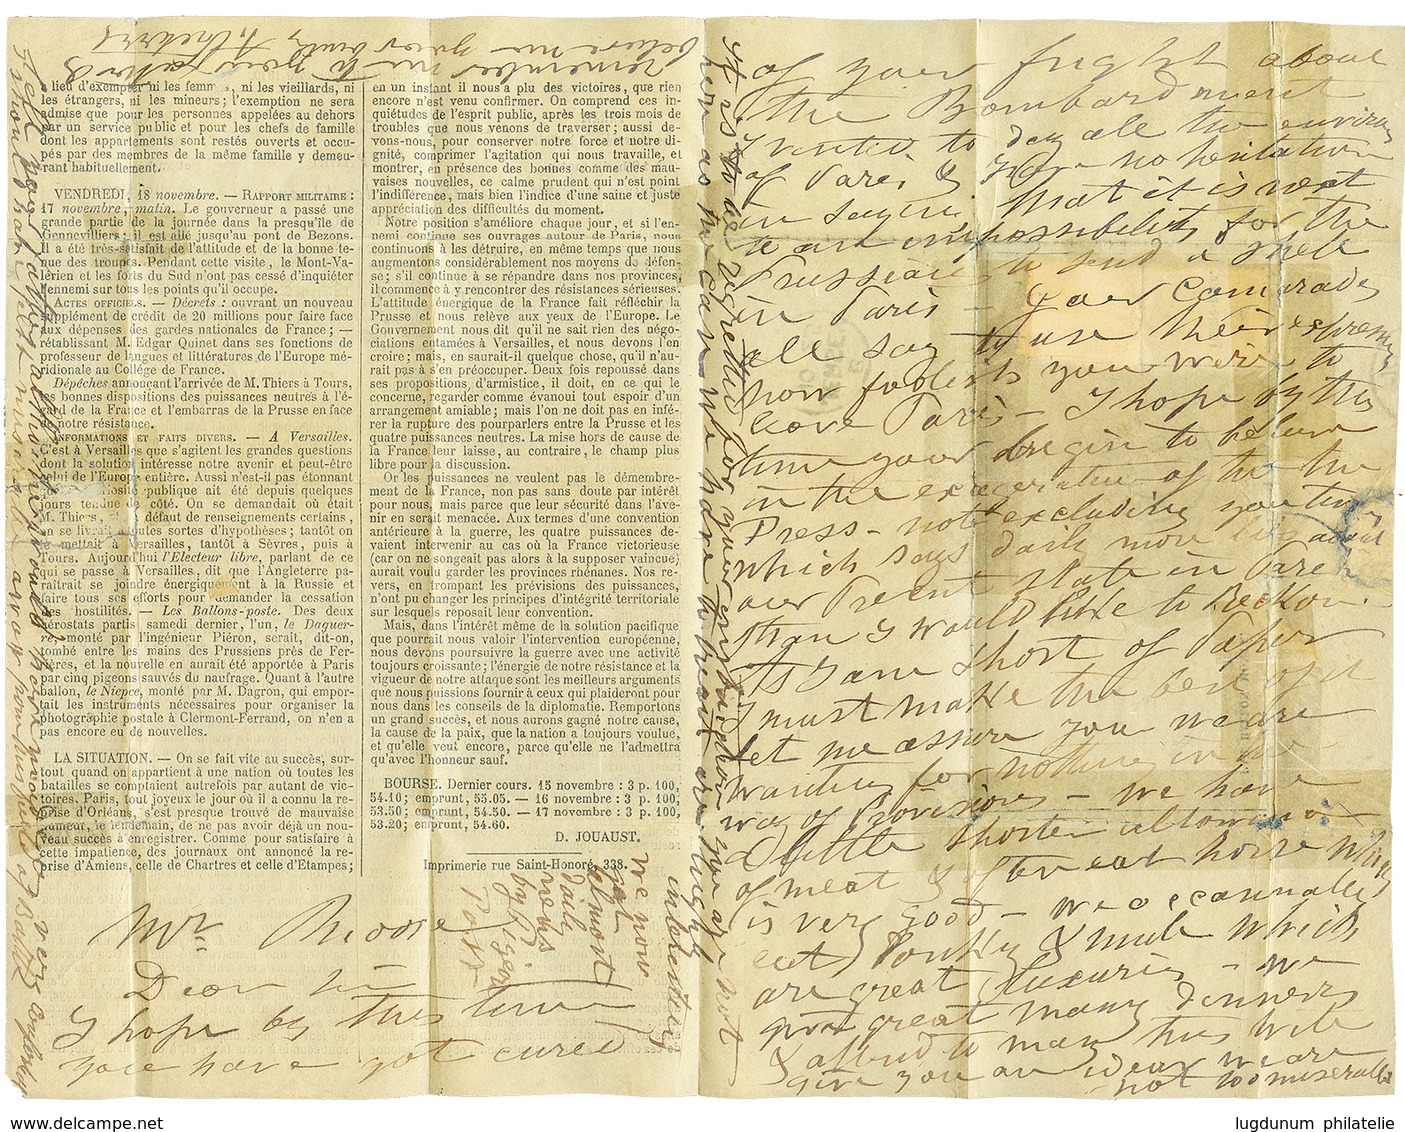 lieu d'exempter ni les femmes, ni les vieillards, ni
les étrangers, ni les mineurs; l'exemption ne sera
admise que pour les personnes appelées au dehors
par un service public et pour les chefs de famille
dont les appartements sont restés ouverts et occu-
pés par des membres de la même famille y demeu-
rant habituellement.
VENDREDI, 18 novembre. — RAPPORT MILITAIRE :
17 novembre, matin. Le gouverneur a passé une
grande partie de la journée dans la presqu'île de
Gennevilliers; il est allé jusqu'au pont de Bezons.
Il a été très-satisfait de l'attitude et de la bonne te-
nue des troupes. Pendant cette visite, le Mont-Va-
lérien et les forts du Sud n'ont pas cessé d'inquiéter
l'ennemi sur tous les points qu'il occupe.
ACTES OFFICIELS. — Décrets : ouvrant un nouveau
supplément de crédit de 20 millions pour faire face
aux dépenses des gardes nationales de France; —
rétablissant M. Edgar Quinet dans ses fonctions de
professeur de langues et littératures de l'Europe mé-
ridionale au Collége de France.
Dépêches annonçant l'arrivée de M. Thiers à Tours,
les bonnes dispositions des puissances neutres à l'é-
gard de la France et l'embarras de la Prusse en face
de notre résistance.
INFORMATIONS ET FAITS DIVERS. — A Versailles.
C'est à Versailles que s'agitent les grandes questions
dont la solution intéresse notre avenir et peut-être
celui de l'Europe entière. Aussi n'est-il pas étonnant
que la curiosité publique ait été depuis quelques
jours tendue de ce côté. On se demandait où était
M. Thiers, et à défaut de renseignements certains,
on se livrait à toutes sortes d'hypothèses; tantôt on
le mettait à Versailles, tantôt à Sèvres, puis à
Tours. Aujourd'hui l'Electeur libre, parlant de ce
qui se passe à Versailles, dit que l'Angleterre pa-
raîtrait se joindre énergiquement à la Russie et
faire tous ses efforts pour demander la cessation
des hostilités. — Les Ballons-poste. Des deux
aérostats partis samedi dernier, l'un, le Daguer-
re, monté par l'ingénieur Piéron, serait, dit-on,
tombé entre les mains des Prussiens près de Fer-
rières, et la nouvelle en aurait été apportée à Paris
par cinq pigeons sauvés du naufrage. Quant à l'autre
ballon, le Niepce, monté par M. Dagron, qui empor-
tait les instruments nécessaires pour organiser la
photographie postale à Clermont-Ferrand, on n'en a
pas encore eu de nouvelles.
LA SITUATION. — On se fait vite au succès, sur-
tout quand on appartient à une nation où toutes les
batailles se comptaient autrefois par autant de vic-
toires. Paris, tout joyeux le jour où il a connu la re-
prise d'Orléans, s'est presque trouvé de mauvaise
humeur, le lendemain, de ne pas avoir déjà un nou-
veau succès à enregistrer. Comme pour satisfaire à
cette impatience, des journaux ont annoncé la re-
prise d'Amiens, celle de Chartres et celle d'Etampes;
en un instant il nous a plu des victoires, que rien
encore n'est venu confirmer. On comprend ces in-
quiétudes de l'esprit public, après les trois mois de
troubles que nous venons de traverser; aussi de-
vons-nous, pour conserver notre force et notre di-
gnité, comprimer l'agitation qui nous travaille, et
montrer, en présence des bonnes comme des mau-
vaises nouvelles, ce calme prudent qui n'est point
l'indifférence, mais bien l'indice d'une saine et juste
appréciation des difficultés du moment.
Notre position s'améliore chaque jour, et si l'en-
nemi continue ses ouvrages autour de Paris, nous
continuons à les détruire, en même temps que nous
augmentons considérablement nos moyens de défen-
ses; s'il continue à se répandre dans nos provinces,
il commence à y rencontrer des résistances sérieuses.
L'attitude énergique de la France fait réfléchir la
Prusse et nous relève aux yeux de l'Europe. Le
Gouvernement nous dit qu'il ne sait rien des négo-
ciations entamées à Versailles, et nous devons l'en
croire; mais, en saurait-il quelque chose, qu'il n'au-
rait pas à s'en préoccuper. Deux fois repoussé dans
ses propositions d'armistice, il doit, en ce qui le
concerne, regarder comme évanoui tout espoir d'un
arrangement amiable; mais l'on ne doit pas en infé-
rer la rupture des pourparlers entre la Prusse et les
quatre puissances neutres. La mise hors de cause de
la France leur laisse, au contraire, le champ plus
libre pour la discussion.
Or les puissances ne veulent pas le démembre-
ment de la France, non pas sans doute par intérêt
pour nous, mais parce que leur sécurité dans l'ave-
nir en serait menacée. Aux termes d'une convention
antérieure à la guerre, les quatre puissances de-
vaient intervenir au cas où la France victorieuse
(car on ne songeait pas alors à la supposer vaincue)
aurait voulu garder les provinces rhénanes. Nos re-
vers, en trompant les prévisions des puissances,
n'ont pu changer les principes d'intégrité territoriale
sur lesquels reposait leur convention.
Mais, dans l'intérêt même de la solution pacifique
que pourrait nous valoir l'intervention européenne,
nous devons poursuivre la guerre avec une activité
toujours croissante; l'énergie de notre résistance et la
vigueur de notre attaque sont les meilleurs arguments
que nous puissions fournir à ceux qui plaideront pour
nous dans les conseils de la diplomatie. Remportons
un grand succès, et nous aurons gagné notre cause,
la cause de la paix, que la nation a toujours voulue,
et qu'elle veut encore, parce qu'elle ne l'admettra
qu'avec l'honneur sauf.
BOURSE. Dernier cours. 15 novembre : 3 p. 100,
54.10; emprunt, 55.05. — 16 novembre : 3 p. 100,
53.50; emprunt, 54.50. — 17 novembre : 3 p. 100,
53.20; emprunt, 54.60.
D. JOUAUST.
Imprimerie rue Saint-Honoré, 338.
Mr. Moore
Dear Sir
I hope by this time
you have got cured
of your fright about
the Bombardment
I visited to day all the environs
of Paris & I have no hesitation
in saying that it is next
to an impossibility for the
Prussians to send a shell
in Paris - your Comrades
all say to use their expression
how foolish you were to
leave Paris - I hope by this
time you begin to believe
in the exageration of the
Press - not excluding you times
which says daily more lies about
our Present state in Paris
than I would like to Reckon.
As I am short of Paper
I must make the best of it
let me assure you we are
wanting for nothing in the
way of Provisions - we have
a little shorter allowance
of meat & often eat horse which
is very good - we occasionally
eat Donkey & mule which
are great luxuries - we
give great many dinners
& attend to many this will
give you an idear we are
not too miserable
It is to be regretted for
here as we can we have to
we now
get
almost
daily
news
by Pigeon
Post
remember me to your
believe me yours truly